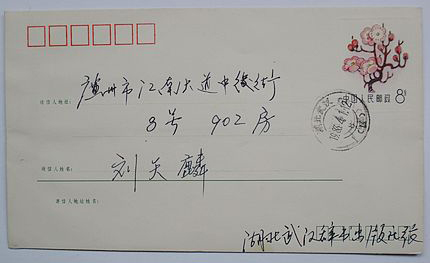 中国人民邮政 8分
收信人地址: 广州市江南大道中
8号 902房
收信人姓名: 刘天麟
寄信人地址姓名:
湖北武汉辞书出版社张